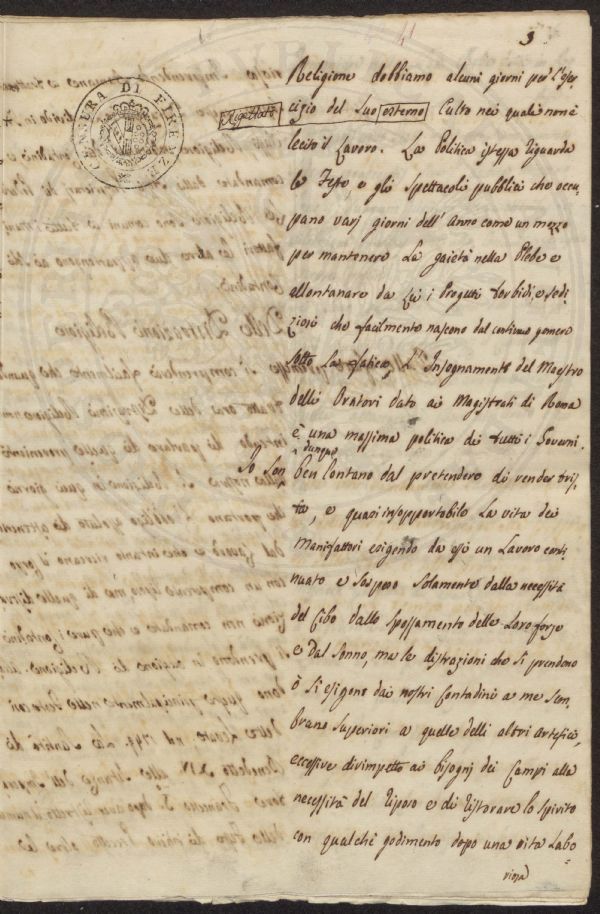 3
CENSURA DI FIRENZE
Religione dobbiamo alcuni giorni per l'eser
cizio del suo esterno Culto nei quali non è
lecito il Lavoro. La Politica istessa riguarda
le Feste, e gli spettacoli pubblici che occu
pano varj giorni dell'Anno come un mezzo
per mantenere la gaietà nella Plebe e
allontanare da Lei i Progetti torbidi, e sedi
ziosi che facilmente nascono dal continuo gemere
sotto la fatica, l'Insegnamento del Maestro
delli Oratori dato ai Magistrati di Roma
è una massima politica di tutti i Governi.
dunque
Io son ben lontano dal pretendere di render tris
ta, e quasi insopportabile la vita dei
Manifattori esigendo da essi un Lavoro conti
nuato e sospeso solamente dalla necessità
del Cibo dallo spossamento delle Loro forze
e dal sonno, ma le distrazioni che si prendono
o si esigono dai nostri Contadini a me sem
brano superiori a quelle delli altri Artefici,
eccessive dirimpetto ai bisogni dei Campi alla
necessità del riposo e di ristorare lo spirito
con qualche godimento dopo una vita Labo=
riosa